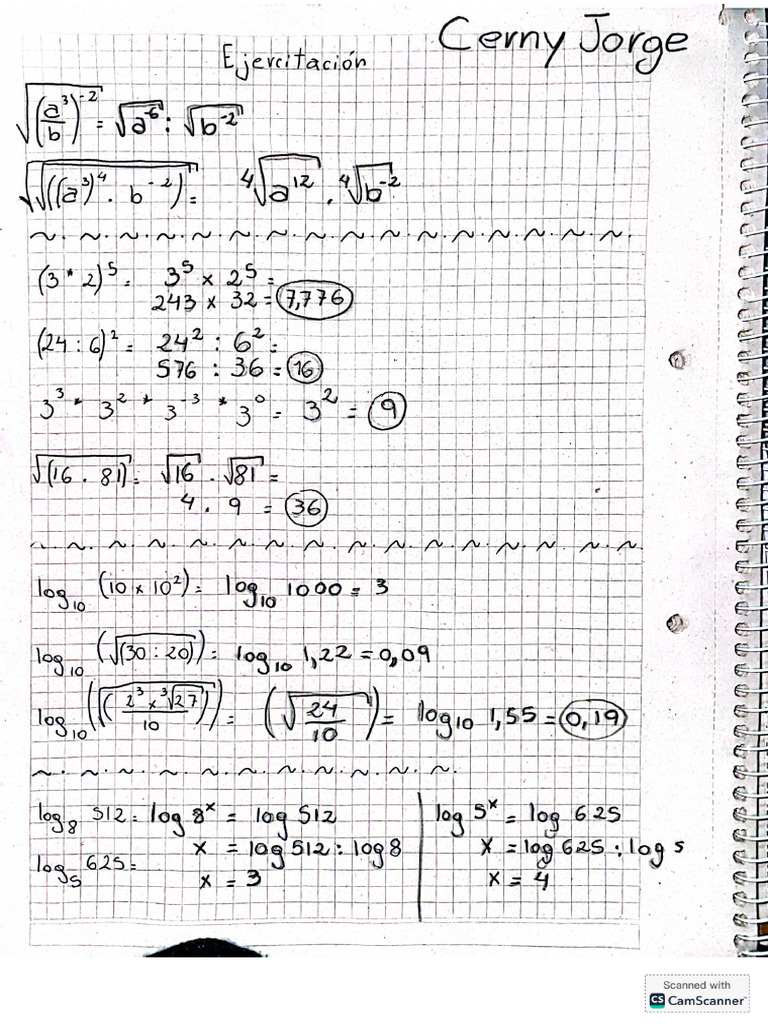 Cerny Jorge
Ejercitación
√((a³/b)⁻²) = √a⁻⁶ : √b⁻²
√√(((a³)⁴ . b⁻²)) = ⁴√a¹² . ⁴√b⁻²
~.~.~.~.~.~.~.~.~.~.~.~.~.~.~.~.~.
(3 * 2)⁵ = 3⁵ x 2⁵ =
243 x 32 = 7,776
(24 : 6)² = 24² : 6² =
576 : 36 = 16
3³ * 3² * 3⁻³ * 3⁰ = 3² = 9
√(16 . 81) = √16 . √81 =
4 . 9 = 36
~.~.~.~.~.~.~.~.~.~.~.~.~.~.~.~.
log₁₀ (10 x 10²) = log₁₀ 1000 = 3
log₁₀ (√(30 : 20)) = log₁₀ 1,22 = 0,09
log₁₀ (√((2³ x ³√27)/10)) = (√(24/10)) = log₁₀ 1,55 = 0,19
~.~.~.~.~.~.~.~.~.~.~.
log₈ 512 = log 8ˣ = log 512
x = log 512 : log 8
log₅ 625 =
x = 3
log 5ˣ = log 625
x = log 625 : log 5
x = 4
Scanned with
CS CamScanner